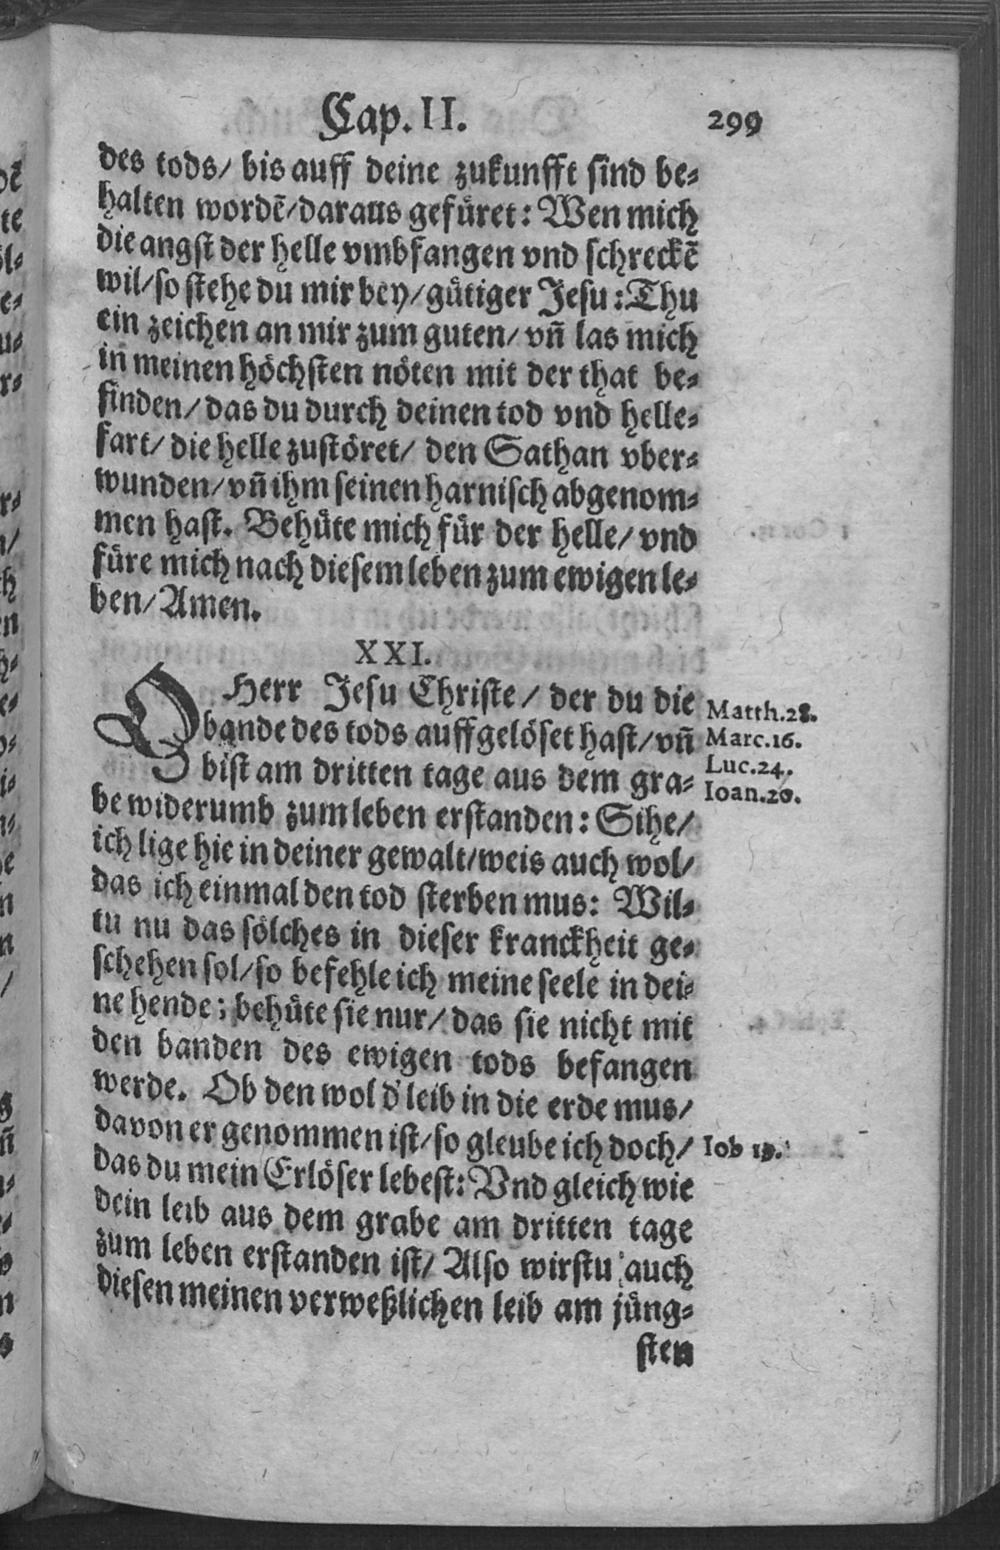 Cap. II. 299
des tods/ bis auff deine zukunfft sind be-
halten wordẽ/daraus gefüret: Wen mich
die angst der helle vmbfangen vnd schreckẽ
wil/so stehe du mir bey/gütiger Jesu: Thu
ein zeichen an mir zum guten/ vñ las mich
in meinen höchsten nöten mit der that be-
finden/das du durch deinen tod vnd helle-
fart/ die helle zustöret/ den Sathan vber-
wunden/vñ ihm seinen harnisch abgenom-
men hast. Behüte mich für der helle/ vnd
füre mich nach diesem leben zum ewigen le-
ben/Amen.
XXI.
O Herr Jesu Christe/ der du die
bande des tods auffgelöset hast/vñ
bist am dritten tage aus dem gra-
be widerumb zum leben erstanden: Sihe/
ich lige hie in deiner gewalt/weis auch wol/
das ich einmal den tod sterben mus: Wil-
tu nu das sölches in dieser kranckheit ge-
schehen sol/so befehle ich meine seele in dei-
ne hende; behüte sie nur/ das sie nicht mit
den banden des ewigen tods befangen
werde. Ob den wol d' leib in die erde mus/
davon er genommen ist/so gleube ich doch/
das du mein Erlöser lebest: Vnd gleich wie
dein leib aus dem grabe am dritten tage
zum leben erstanden ist/ Also wirstu auch
diesen meinen verweßlichen leib am jüng-
sten
Matth.28.
Marc.16.
Luc.24.
Ioan.20.
Iob 19.